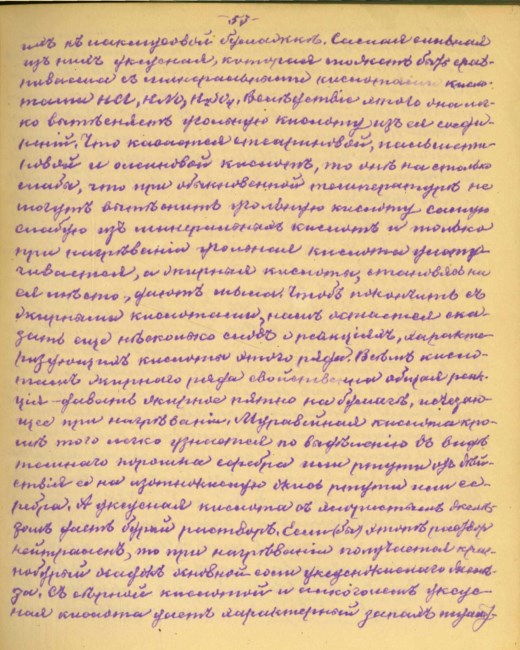 - 53 -
ихъ къ лакмусовой бумажкѣ. Самая сильная
изъ нихъ уксусная, которая можетъ быть срав-
ниваема съ минеральными кислотами кисло-
тами HCl, HNO3, H2SO4. Вслѣдствіи этого она лег-
ко вытѣсняетъ угольную кислоту изъ ея соеди-
неній. Что касается стеариновой, пальмити-
новой и олеиновой кислотъ, то онѣ на столько
слабы, что при обыкновенной температурѣ не
могутъ вытѣснить угольную кислоту самую
слабую изъ минеральныхъ кислотъ и только
при нагрѣваніи угольная кислота улету-
чивается, а жирная кислоты, становясь на
ея мѣсто, даютъ мыла. Чтобъ покончить съ
жирными кислотами, намъ остается ска-
зать еще нѣсколько словъ о реакціяхъ, характе-
ризующихъ кислоты этого ряда. Всѣмъ кисло-
тамъ жирнаго ряда свойственна общая реак-
ція - давать жирное пятно на бумагѣ, исчезаю-
щее при нагрѣваніи. Муравейная кислота кро-
мѣ того легко узнается по выдѣленію въ видѣ
темнаго порошка серебра или ртути изъ дѣй-
ствія ея на азотнокислую окись ртути или се-
ребра. А уксусная кислота съ хлористымъ желѣ-
зомъ даетъ бурый растворъ. Если этотъ раствор
нейтраленъ, то при нагрѣваніи получается крас-
нобурый осадокъ основной соли уксуснокислаго желѣ-
за. Съ сѣрной кислотой и алкоголемъ уксус-
ная кислота даетъ характерный запахъ